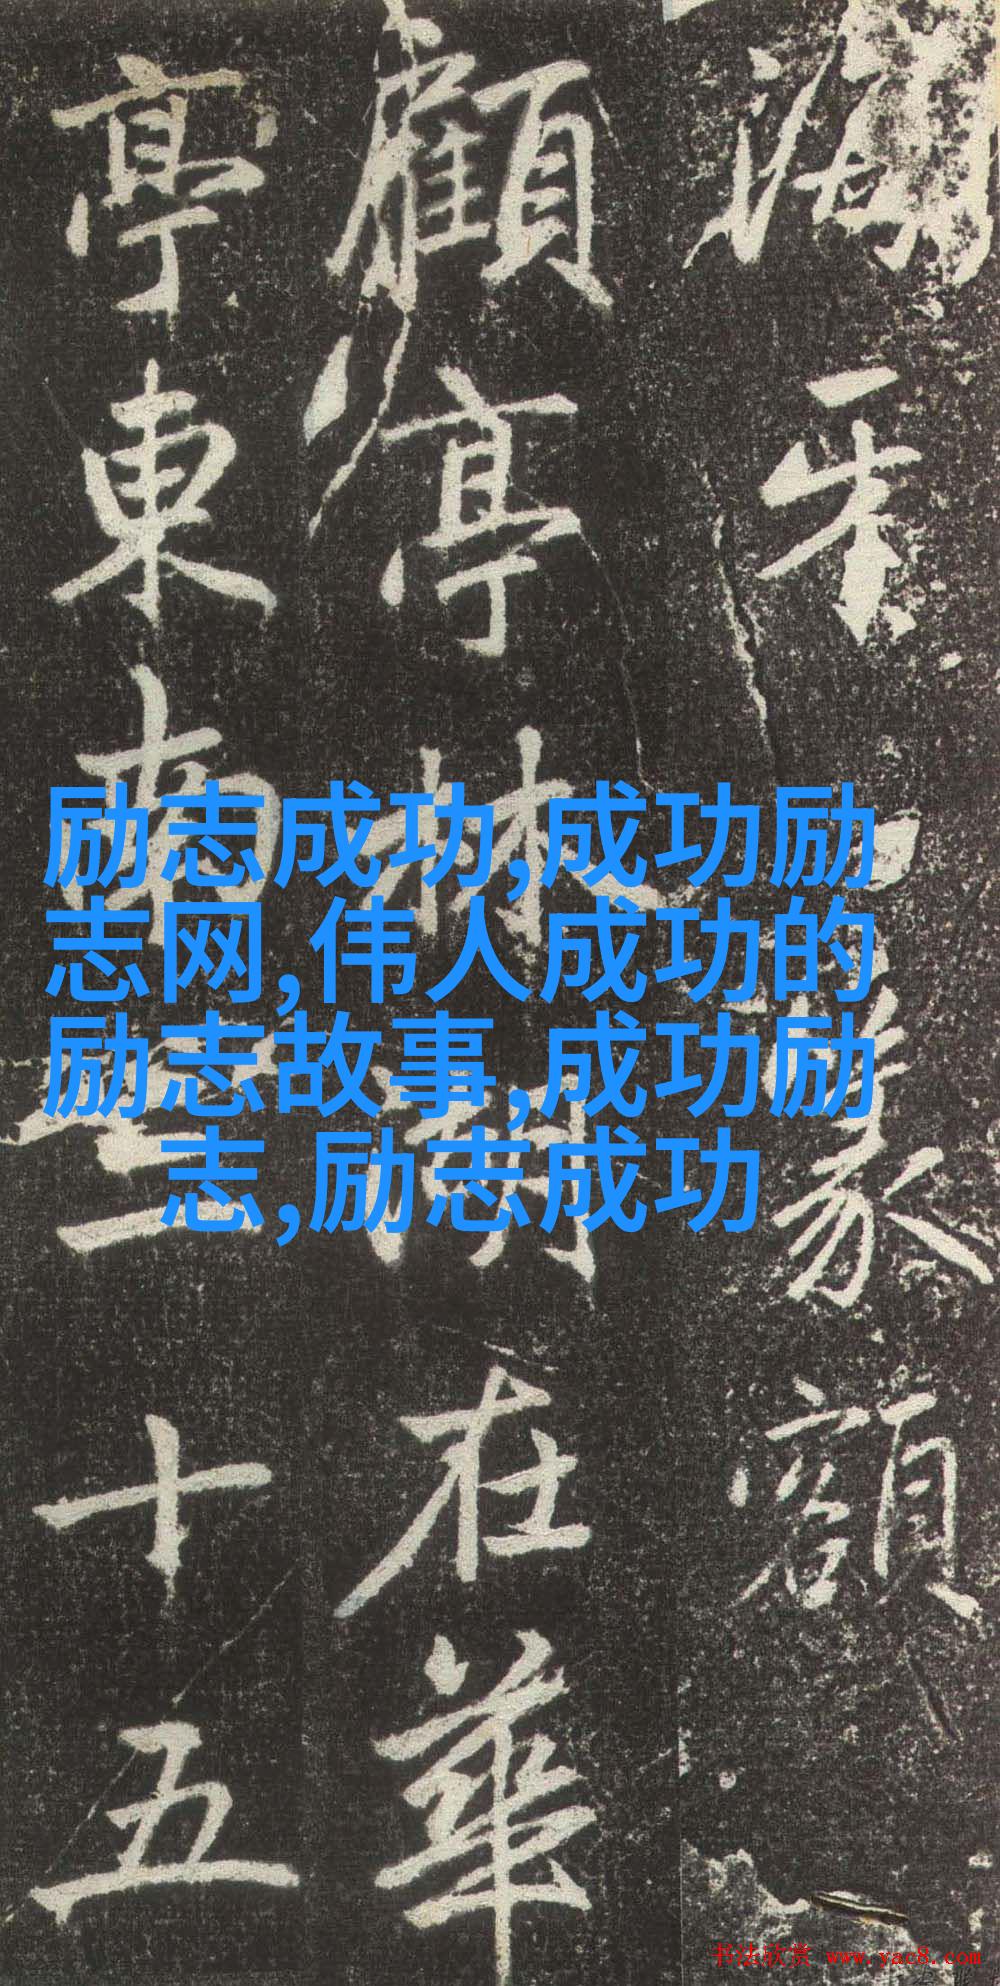 孟頫篆額
顧亭林湖在華
亭東南三十五
励志成功,成功励
志网,伟人成功的
励志故事,成功励
志,励志成功
书法欣赏 www.yac8.com